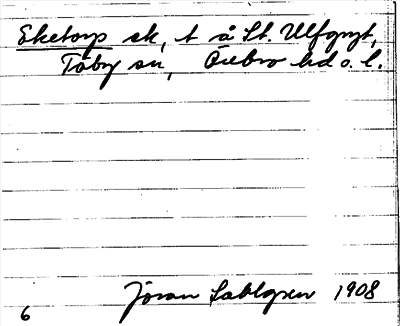 Eketorp sk, t å St. Ulfgryt,
Täby sn, Örebro hd o. l.
Jöran Sahlgren 1908
6